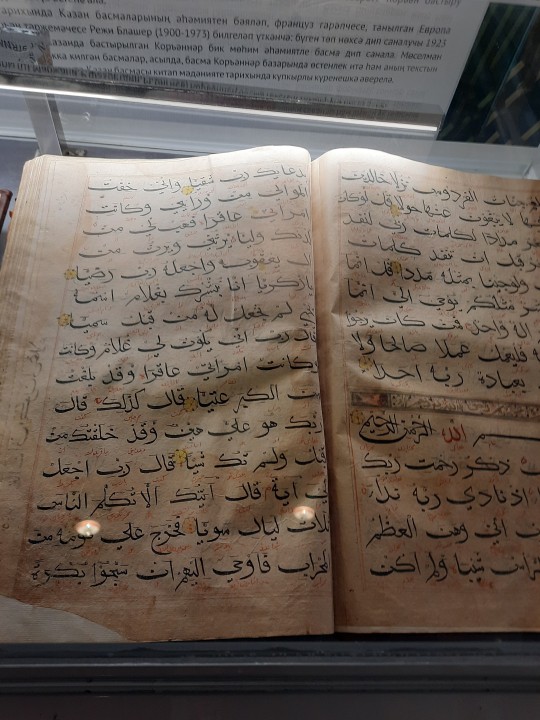 Коръән бастыру
тарихында Казан басмаларының әһәмиятен бәяләп, француз гарәпчесе, танылган Европа
тәрҗемәчесе Режи Блашер (1900-1973) билгеләп үткәнчә: бүген төп нөсхә дип саналучы 1923
Казанда бастырылган Коръәннәр бик мөһим әһәмиятле басма дип санала. Мөселман
килгән басмалар, асылда, басма Коръәннәр базарында өстенлек итә һәм аның текстын
Казан басмасы китап мәдәнияте тарихында күпкырлы күренешкә әверелә.
جنات الفردوس نزلا خالدين
لا يبغون عنها حولا قل لو كان
مدادا لكلمات ربي لنفد
قبل ان تنفد كلمات
ولو جئنا بمثله مددا قل انما
مثلكم يوحى الي انما
اله واحد فمن كان يرجوا
فليعمل عملا صالحا ولا
بعبادة ربه احدا
الله الرحمن الرحيم
ذكر رحمت ربك
اذ نادى ربه نداء
اني وهن العظم
شيبا ولم اكن
بدعائك رب شقيا واني خفت
الموالي من وراءي وكانت
امراتي عاقرا فهب لي من
لدنك وليا يرثني ويرث من
ال يعقوب واجعله رب رضيا
يا زكريا انا نبشرك بغلام اسمه
لم نجعل له من قبل سميا
قال رب انى يكون لي غلام وكانت
وكانت امراتي عاقرا وقد بلغت
من الكبر عتيا قال كذلك قال
ربك هو علي هين وقد خلقتك من
قبل ولم تك شيا قال رب اجعل
لي اية قال آيتك الا تكلم الناس
ثلاث ليال سويا فخرج على قومه من
المحراب فاوحى اليهم ان سبحوا بكرة